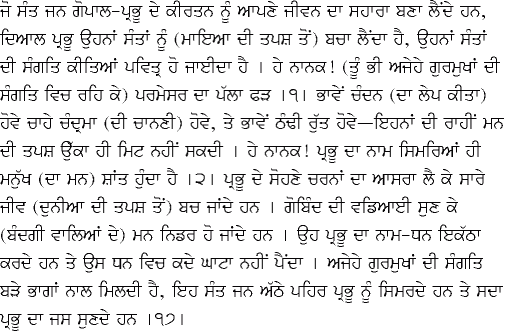 ਜੋ ਸੰਤ ਜਨ ਗੋਪਾਲ-ਪ੍ਰਭੂ ਦੇ ਕੀਰਤਨ ਨੂੰ ਆਪਣੇ ਜੀਵਨ ਦਾ ਸਹਾਰਾ ਬਣਾ ਲੈਂਦੇ ਹਨ,
ਦਿਆਲ ਪ੍ਰਭੂ ਉਹਨਾਂ ਸੰਤਾਂ ਨੂੰ (ਮਾਇਆ ਦੀ ਤਪਸ਼ ਤੋਂ) ਬਚਾ ਲੈਂਦਾ ਹੈ, ਉਹਨਾਂ ਸੰਤਾਂ
ਦੀ ਸੰਗਤਿ ਕੀਤਿਆਂ ਪਵਿਤ੍ਰ ਹੋ ਜਾਈਦਾ ਹੈ । ਹੇ ਨਾਨਕ! (ਤੂੰ ਭੀ ਅਜੇਹੇ ਗੁਰਮੁਖਾਂ ਦੀ
ਸੰਗਤਿ ਵਿਚ ਰਹਿ ਕੇ) ਪਰਮੇਸਰ ਦਾ ਪੱਲਾ ਫੜ ।੧। ਭਾਵੇਂ ਚੰਦਨ (ਦਾ ਲੇਪ ਕੀਤਾ)
ਹੋਵੇ ਚਾਹੇ ਚੰਦ੍ਰਮਾ (ਦੀ ਚਾਨਣੀ) ਹੋਵੇ, ਤੇ ਭਾਵੇਂ ਠੰਢੀ ਰੁੱਤ ਹੋਵੇ—ਇਹਨਾਂ ਦੀ ਰਾਹੀਂ ਮਨ
ਦੀ ਤਪਸ਼ ਉੱਕਾ ਹੀ ਮਿਟ ਨਹੀਂ ਸਕਦੀ । ਹੇ ਨਾਨਕ! ਪ੍ਰਭੂ ਦਾ ਨਾਮ ਸਿਮਰਿਆਂ ਹੀ
ਮਨੁੱਖ (ਦਾ ਮਨ) ਸ਼ਾਂਤ ਹੁੰਦਾ ਹੈ ।੨। ਪ੍ਰਭੂ ਦੇ ਸੋਹਣੇ ਚਰਨਾਂ ਦਾ ਆਸਰਾ ਲੈ ਕੇ ਸਾਰੇ
ਜੀਵ (ਦੁਨੀਆ ਦੀ ਤਪਸ਼ ਤੋਂ) ਬਚ ਜਾਂਦੇ ਹਨ । ਗੋਬਿੰਦ ਦੀ ਵਡਿਆਈ ਸੁਣ ਕੇ
(ਬੰਦਗੀ ਵਾਲਿਆਂ ਦੇ) ਮਨ ਨਿਡਰ ਹੋ ਜਾਂਦੇ ਹਨ । ਉਹ ਪ੍ਰਭੂ ਦਾ ਨਾਮ-ਧਨ ਇਕੱਠਾ
ਕਰਦੇ ਹਨ ਤੇ ਉਸ ਧਨ ਵਿਚ ਕਦੇ ਘਾਟਾ ਨਹੀਂ ਪੈਂਦਾ । ਅਜੇਹੇ ਗੁਰਮੁਖਾਂ ਦੀ ਸੰਗਤਿ
ਬੜੇ ਭਾਗਾਂ ਨਾਲ ਮਿਲਦੀ ਹੈ, ਇਹ ਸੰਤ ਜਨ ਅੱਠੇ ਪਹਿਰ ਪ੍ਰਭੂ ਨੂੰ ਸਿਮਰਦੇ ਹਨ ਤੇ ਸਦਾ
ਪ੍ਰਭੂ ਦਾ ਜਸ ਸੁਣਦੇ ਹਨ ।੧੭।